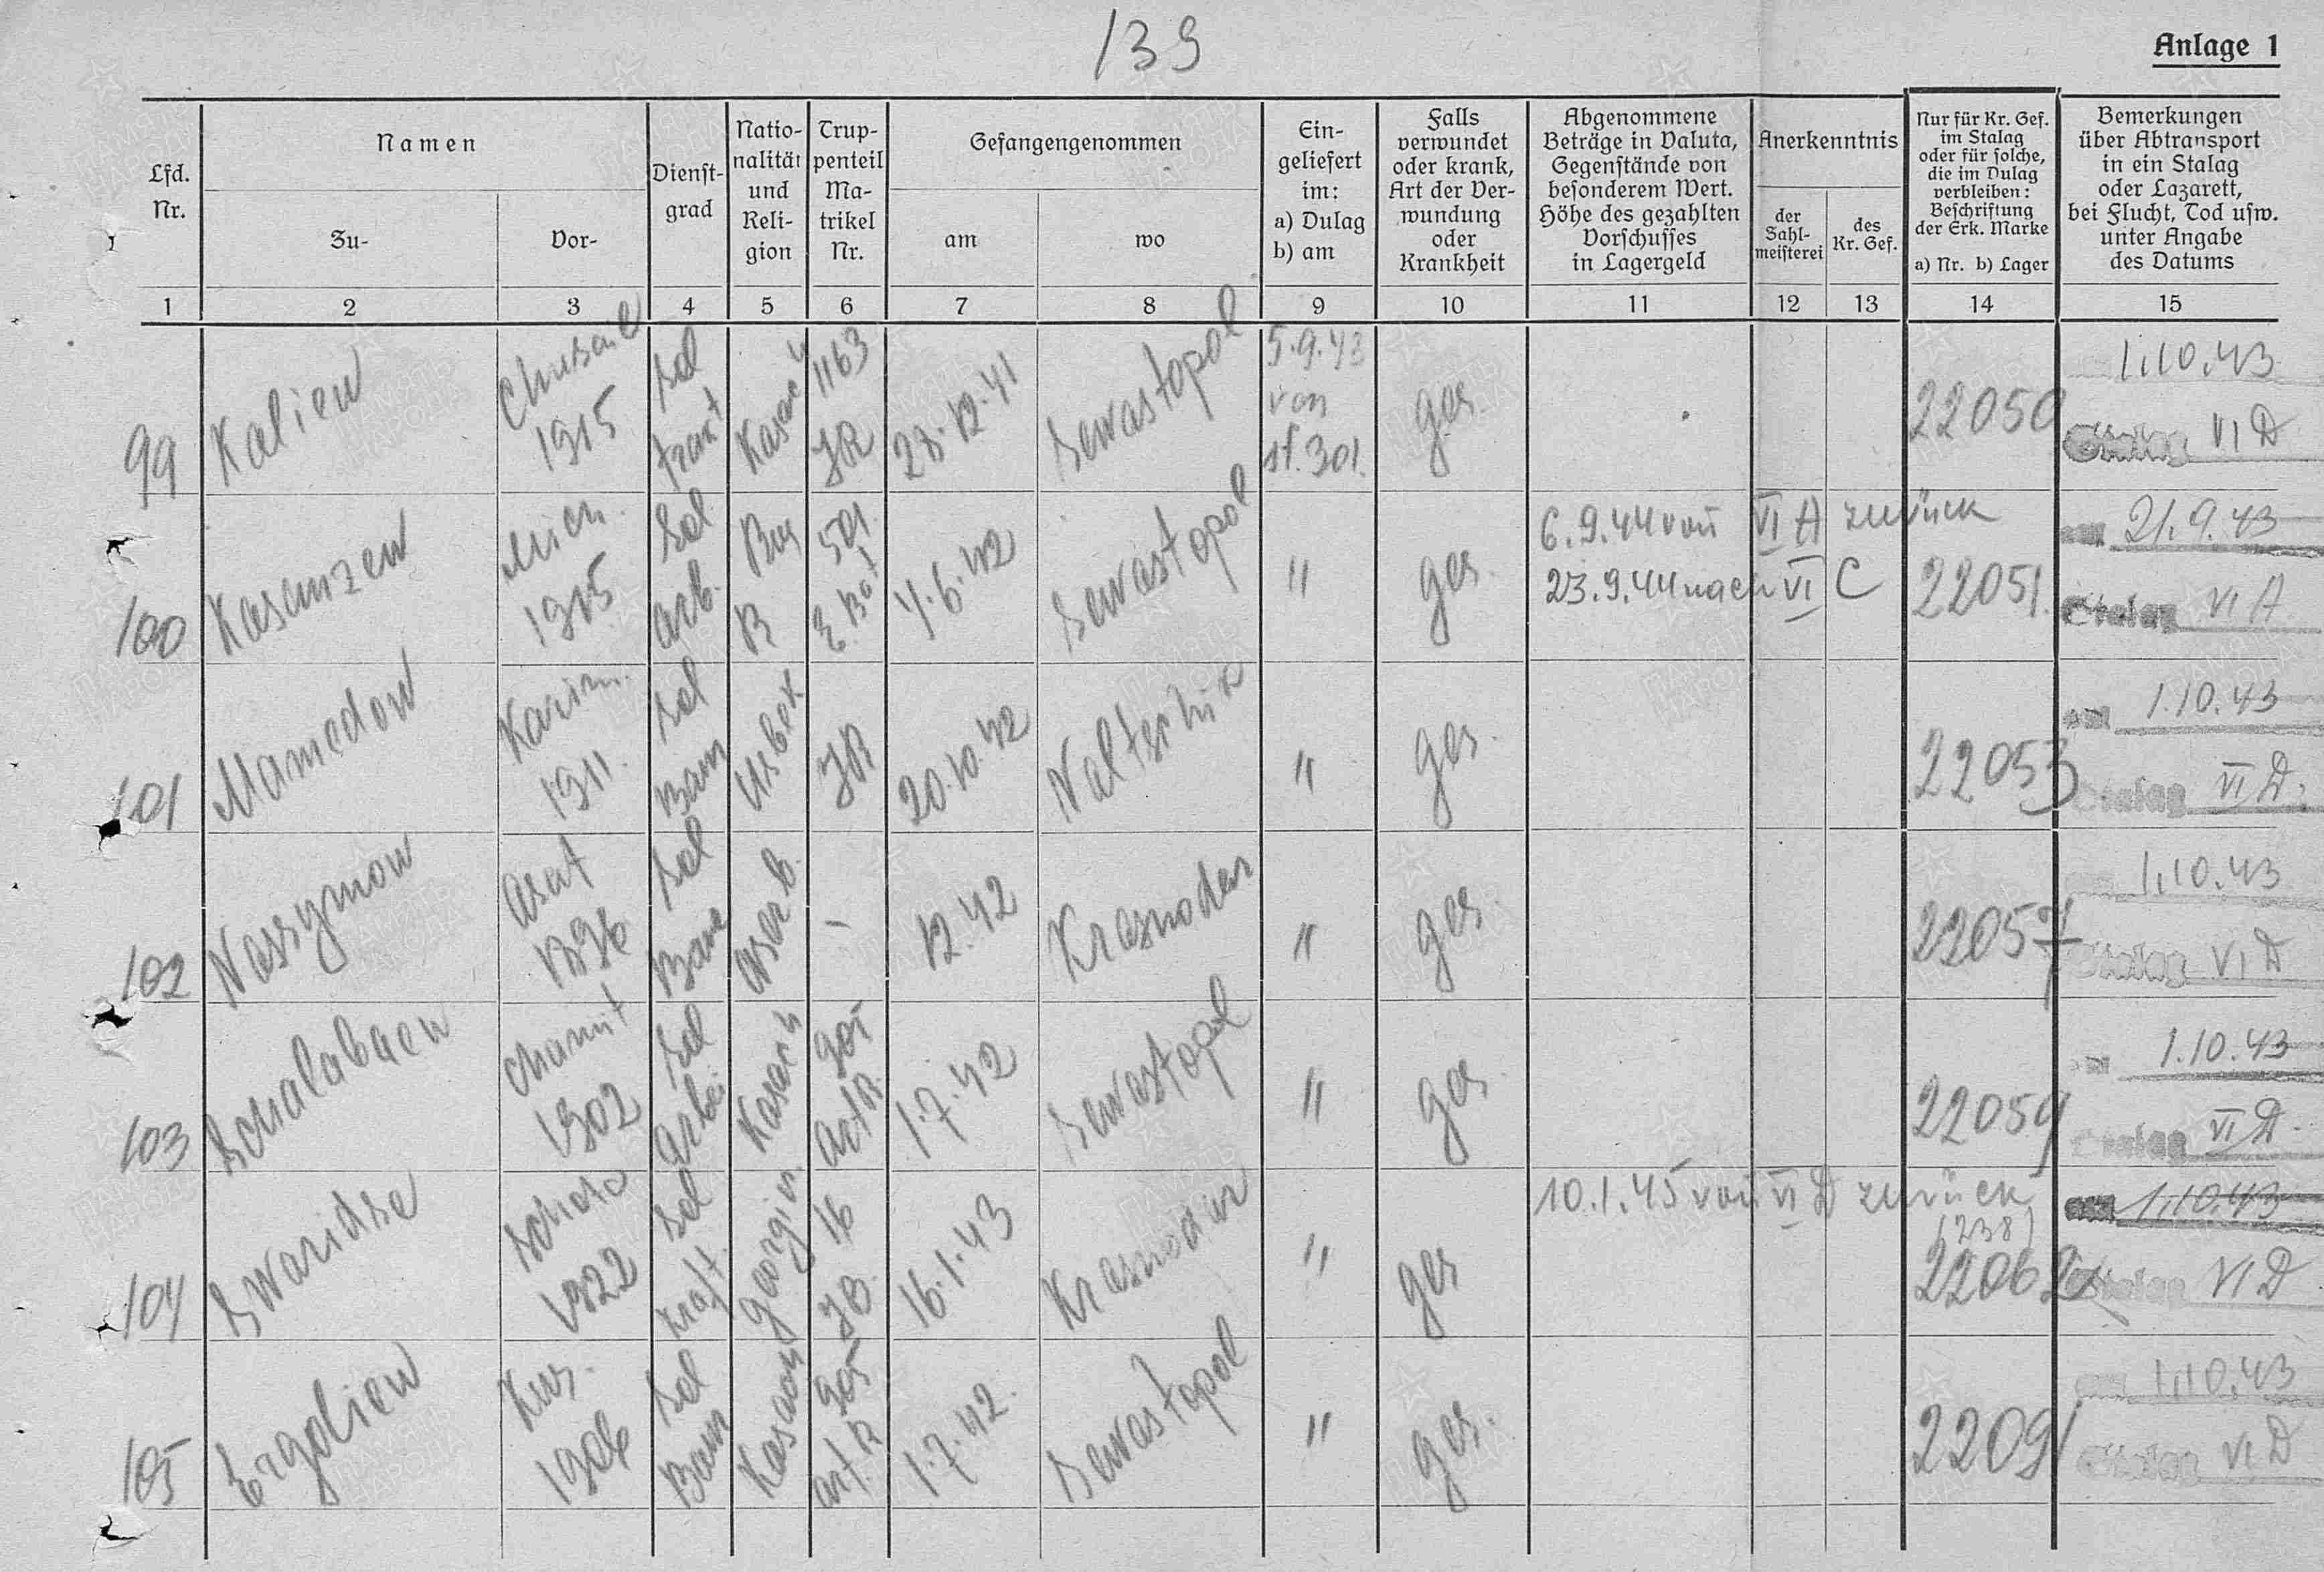 139
Anlage 1
Lfd. Nr.
Namen
Zu-
Vor-
Dienst-
grad
Natio-
nalität
und
Reli-
gion
Trup-
penteil
Ma-
trikel
Nr.
Gefangengenommen
am
wo
Ein-
geliefert
im:
a) Dulag
b) am
Falls
verwundet
oder krank,
Art der Ver-
wundung
oder
Krankheit
Abgenommene
Beträge in Valuta,
Gegenstände von
besonderem Wert.
Höhe des gezahlten
Vorschusses
in Lagergeld
Anerkenntnis
der
Zahl-
meisterei
des
Kr. Gef.
Nur für Kr. Gef.
im Stalag
oder für solche,
die im Dulag
verbleiben:
Beschriftung
der Erk. Marke
a) Nr. b) Lager
Bemerkungen
über Abtransport
in ein Stalag
oder Lazarett,
bei Flucht, Tod usw.
unter Angabe
des Datums
1 2 3 4 5 6 7 8 9 10 11 12 13 14 15
99 Kaliew 1915 Sol 1163 JR 28.12.41 Sewastopol 5.9.43 von st. 301. ges. 22050 1.10.43 Stalag VI D
100 Kasanzew Mich. 1915 Sol Arb. Rus R 501. E.Bat 4.6.42 Sewastopol " ges. 6.9.44 von VI A zurück
23.9.44 nach VI C 22051. 21.9.43 Stalag VI A
101 Mamedow Karim. 1911. Sol Bau Usbek JR 20.10.42 Naltschik " ges. 22053 1.10.43 Stalag VI D.
102 Nassymow Asat 1896 Sol Bau Aserb. - 12.42 Krasnodar " ges. 22057 1.10.43 Stalag VI D
103 Schalabaew Chamit 1902 Sol Arbei Kasach 905 Art R 1.7.42 Sewastopol " ges 22059 1.10.43 Stalag VI D.
104 Swaridse Schota 1922 Sol Kraft. Georgin 16 JB. 16.1.43 Krasnodar " ges 10.1.45 von VI D zurück (238) 22062 1.10.43 Stalag VI D
105 Ergaliew Kus. 1906 Sol Bau Kasach 905 Art. R 1.7.42. Sewastopol " ges. 22091 1.10.43 Stalag VI D